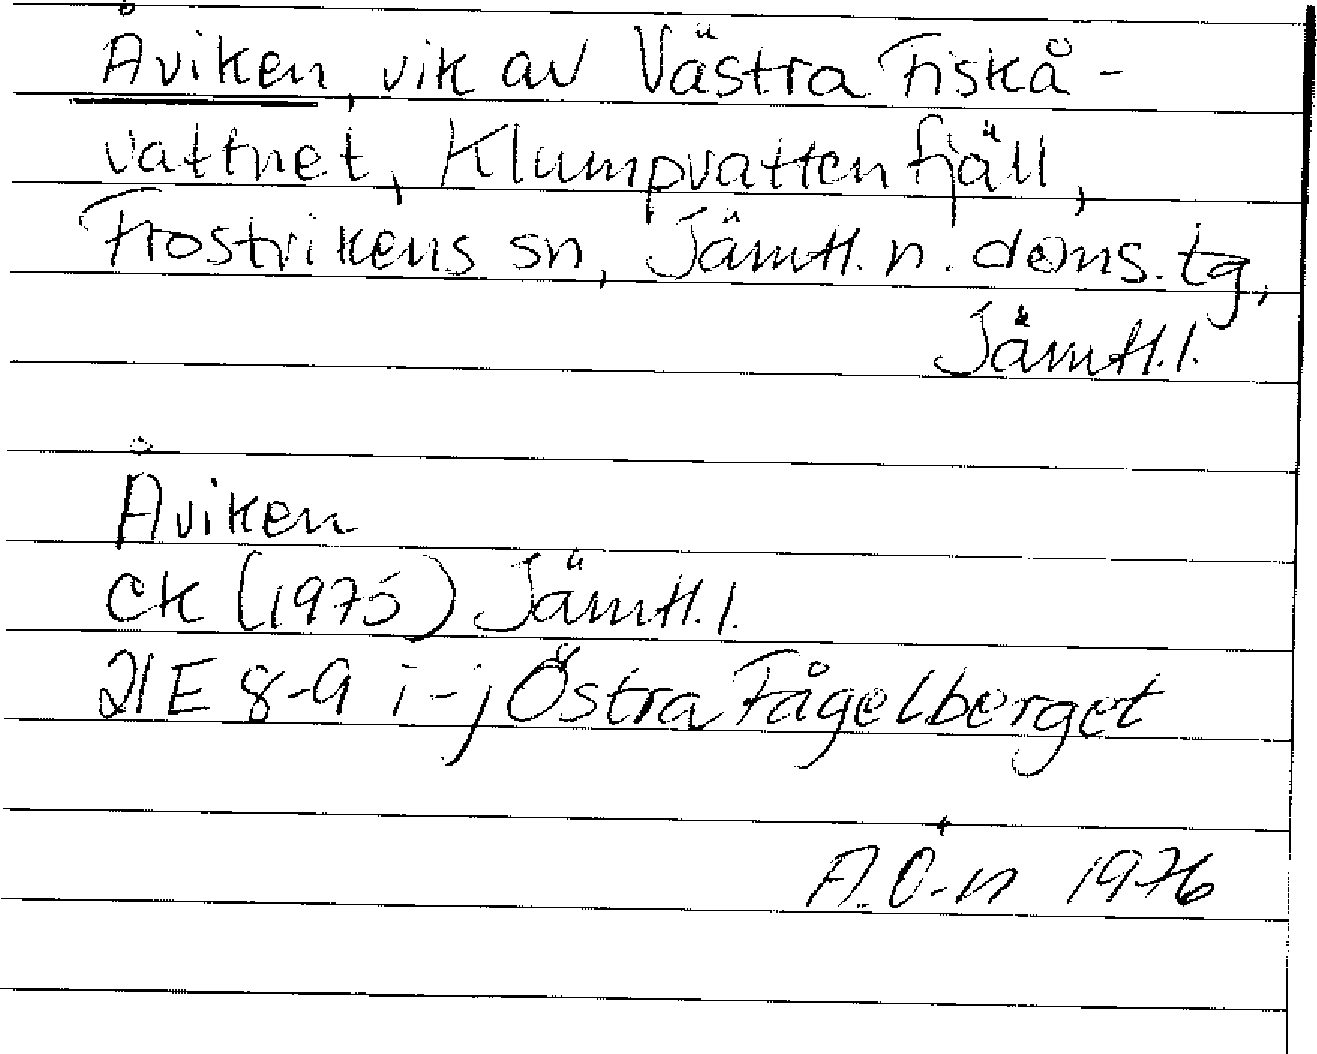 Åviken, vik av Västra Fiskå-
vattnet, Klumpvattenfjäll,
Frostvikens sn, Jämtl. n. doms. tg,
Jämtl. l.
Åviken
EK (1975) Jämtl. l.
21E 8-9 i-j Östra Fågelberget
A. Ö-n 1976